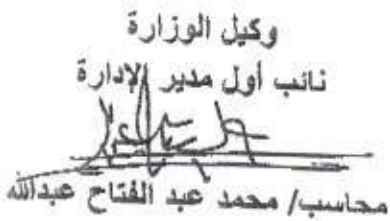 وكيل الوزارة
نائب أول مدير الإدارة
محاسب/ محمد عبد الفتاح عبدالله